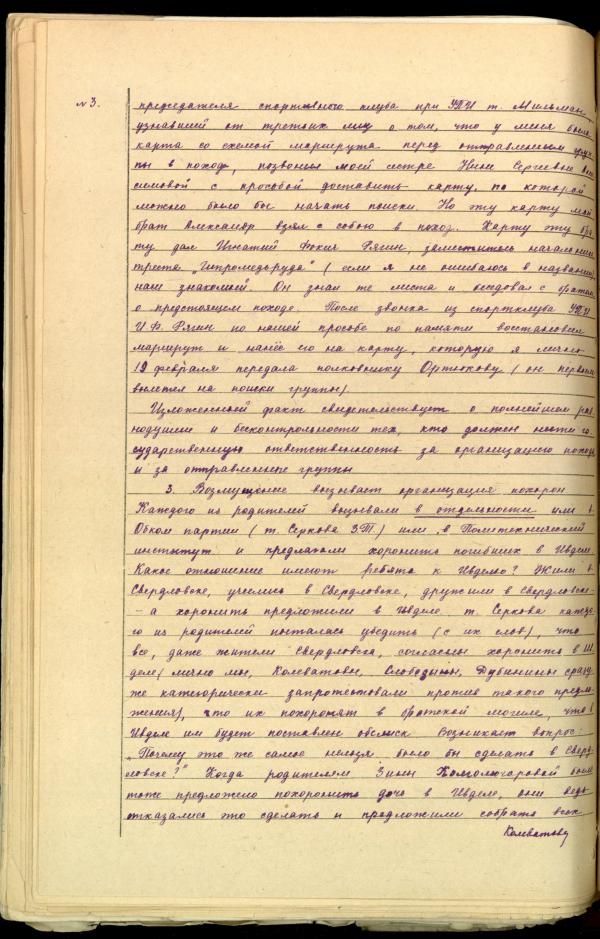 №3.
председателя спортивного клуба при УПИ т. Мильман,
узнавшей от третьих лиц о том, что у меня была
карта со схемой маршрута перед отправлением груп
пы в поход, позвонил моей сестре Нине Сергеевне Ани
симовой с просьбой доставить карту, по которой
можно было бы начать поиски. Но эту карту мой
брат Александр взял с собою в поход. Карту эту бра
ту дал Игнатий Фокич Рягин, заместитель начальник
треста „Гипромедьруда" (если я не ошибаюсь в названии)
наш знакомый. Он знал те места и беседовал с братом
о предстоящем походе. После звонка из спортклуба УПИ
И.Ф. Рягин по нашей просьбе по памяти восстановил
маршрут и нанёс его на карту, которую я лично
19 февраля передала полковнику Ортюкову (он первым
вылетел на поиски группы)
Изложенный факт свидетельствует о полнейшем рав
нодушии и бесконтрольности тех, кто должен нести го
сударственную ответственность за организацию похода
и за отправленные группы
3. Возмущение вызывает организация похорон
Каждого из родителей вызывали в отдельности или в
Обком партии (т. Серкова З.Т.) или в Политехнический
институт и предлагали хоронить погибших в Ивделе.
Какое отношение имеют ребята к Ивделю? Жили в
Свердловске, учились в Свердловске, дружили в Свердловске-
- а хоронить предложили в Ивделе. т. Серкова каждо
го из родителей пыталась убедить (с их слов), что
все, даже жители Свердловска, согласны хоронить в Ив
деле (лично мы, Колеватовы, Слободины, Дубинины сразу
же категорически запротестовали против такого предло
жения), что их похоронят в братской могиле, что в
Ивделе им будет поставлен обелиск Возникает вопрос:
„Почему это же самое нельзя было бы сделать в Сверд
ловске?" Когда родителям Зины Колмогоровой было
тоже предложено похоронить дочь в Ивделе, они ведь
отказались это сделать и предложили собрать всех
Колеватова